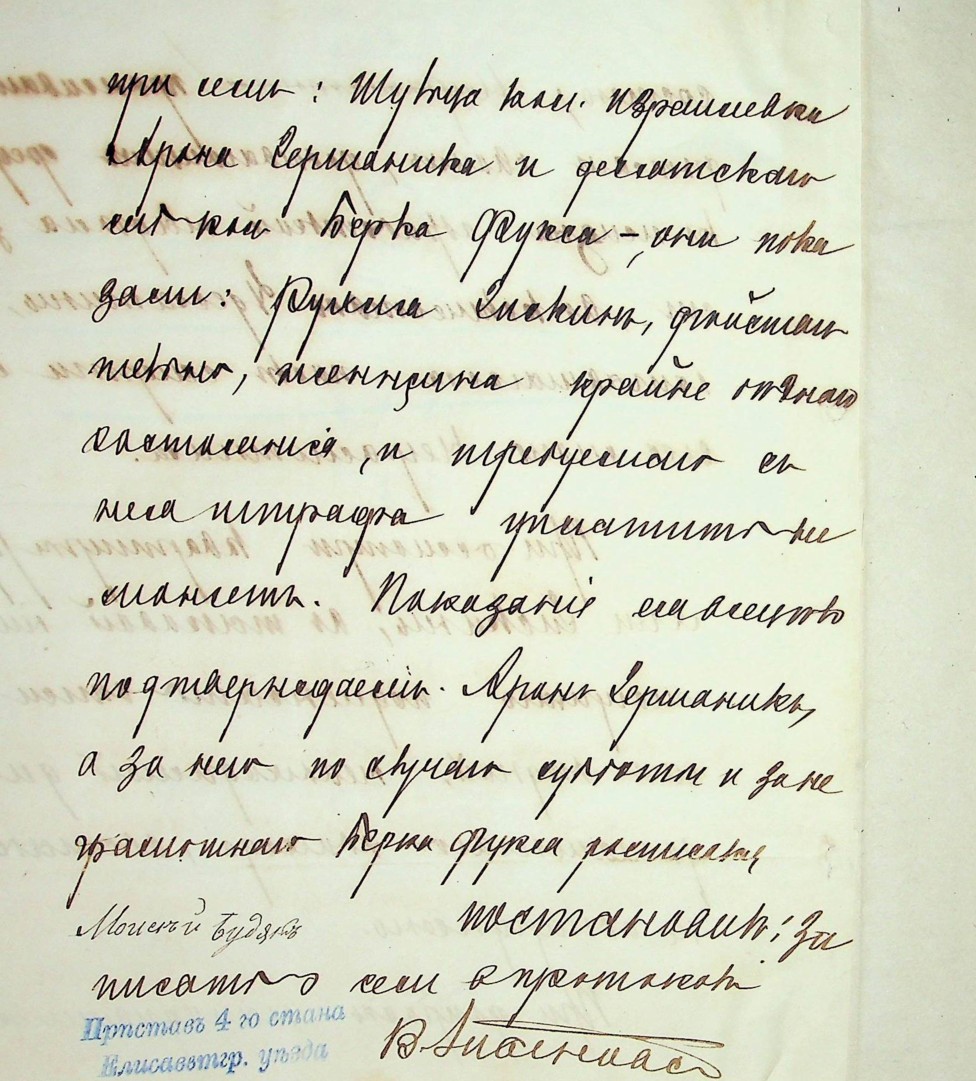 при семъ: Шульца кол. Израилевка
Арона Германика и десятскаго
той кол. Берка Фукса –, они пока
зали: Рухля Зискинъ, дѣйстви
тельно, женщина крайне бѣднаго
состоянія, и требуемаго съ
нея штрафа уплатить не
можетъ. Показаніе сіе
подтверждаемъ. Аронъ Германикъ,
а за него по случаю субботы и за не
грамотнаго Берка Фукса росписался
Моисей Будякъ постановилъ: за
писать о семъ въ протоколъ
Приставъ 4 го стана
Елисаветгр. уѣзда